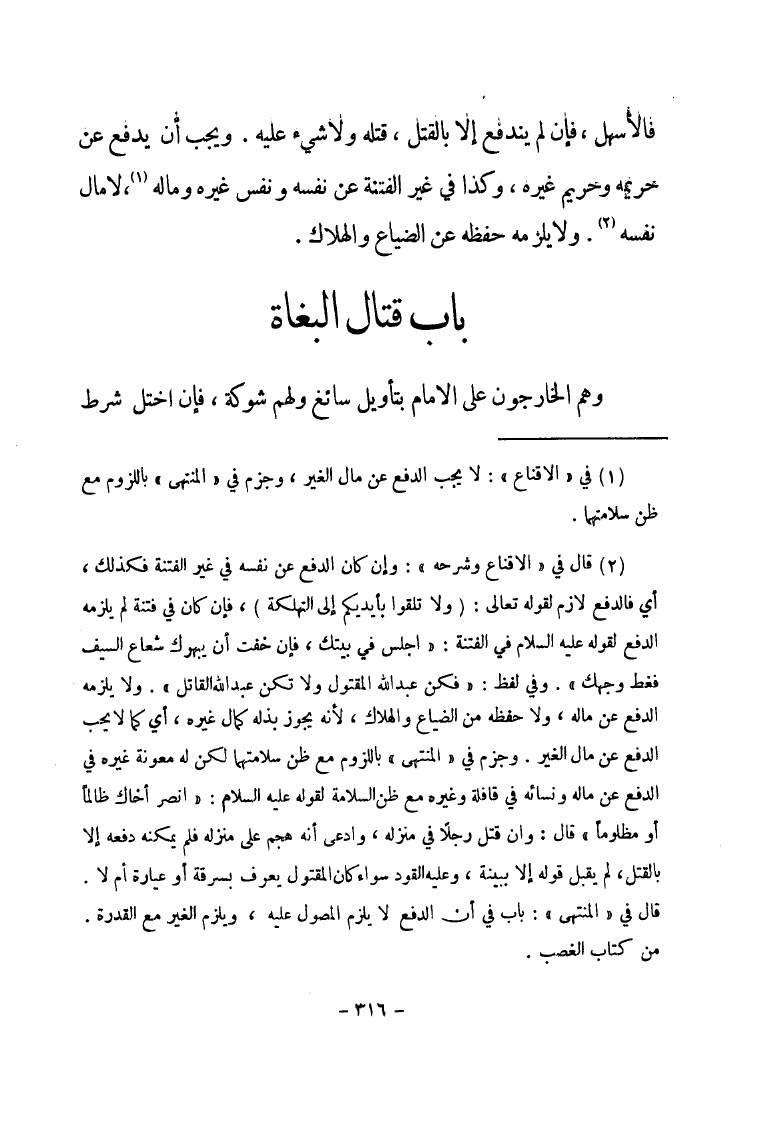 فالأسهل ، فإن لم يندفع إلا بالقتل ، قتله ولا شيء عليه . ويجب أن يدفع عن
حريمه وحريم غيره ، وكذا في غير الفتنة عن نفسه ونفس غيره وماله (١)، لا مال
نفسه (٢) . ولا يلزمه حفظه عن الضياع والهلاك .
باب قتال البغاة
وهم الخارجون على الامام بتأويل سائغ ولهم شوكة ، فإن اختل شرط
(١) في « الاقناع » : لا يجب الدفع عن مال الغير ، وجزم في « المنتهى » باللزوم مع
ظن سلامتها .
(٢) قال في « الاقناع وشرحه » : وإن كان الدفع عن نفسه في غير الفتنة فكذلك ،
أي فالدفع لازم لقوله تعالى : ( ولا تلقوا بأيديكم إلى التهلكة ) ، فإن كان في فتنة لم يلزمه
الدفع لقوله عليه السلام في الفتنة : « اجلس في بيتك ، فإن خفت أن يبهرك شعاع السيف
فغط وجهك » . وفي لفظ : « فكن عبدالله المقتول ولا تكن عبدالله القاتل » . ولا يلزمه
الدفع عن ماله ، ولا حفظه من الضياع والهلاك ، لأنه يجوز بذله كمال غيره ، أي كما لا يجب
الدفع عن مال الغير . وجزم في « المنتهى » باللزوم مع ظن سلامتها لكن له معونة غيره في
الدفع عن ماله ونسائه في قافلة وغيره مع ظن السلامة لقوله عليه السلام : « انصر أخاك ظالماً
أو مظلوماً » قال : وان قتل رجلاً في منزله ، وادعى أنه هجم على منزله فلم يمكنه دفعه إلا
بالقتل، لم يقبل قوله إلا ببينة ، وعليه القود سواء كان المقتول يعرف بسرقة أو عيارة أم لا .
قال في « المنتهى » : باب في أن الدفع لا يلزم المصول عليه ، ويلزم الغير مع القدرة .
من كتاب الغصب .
- ٣١٦ -